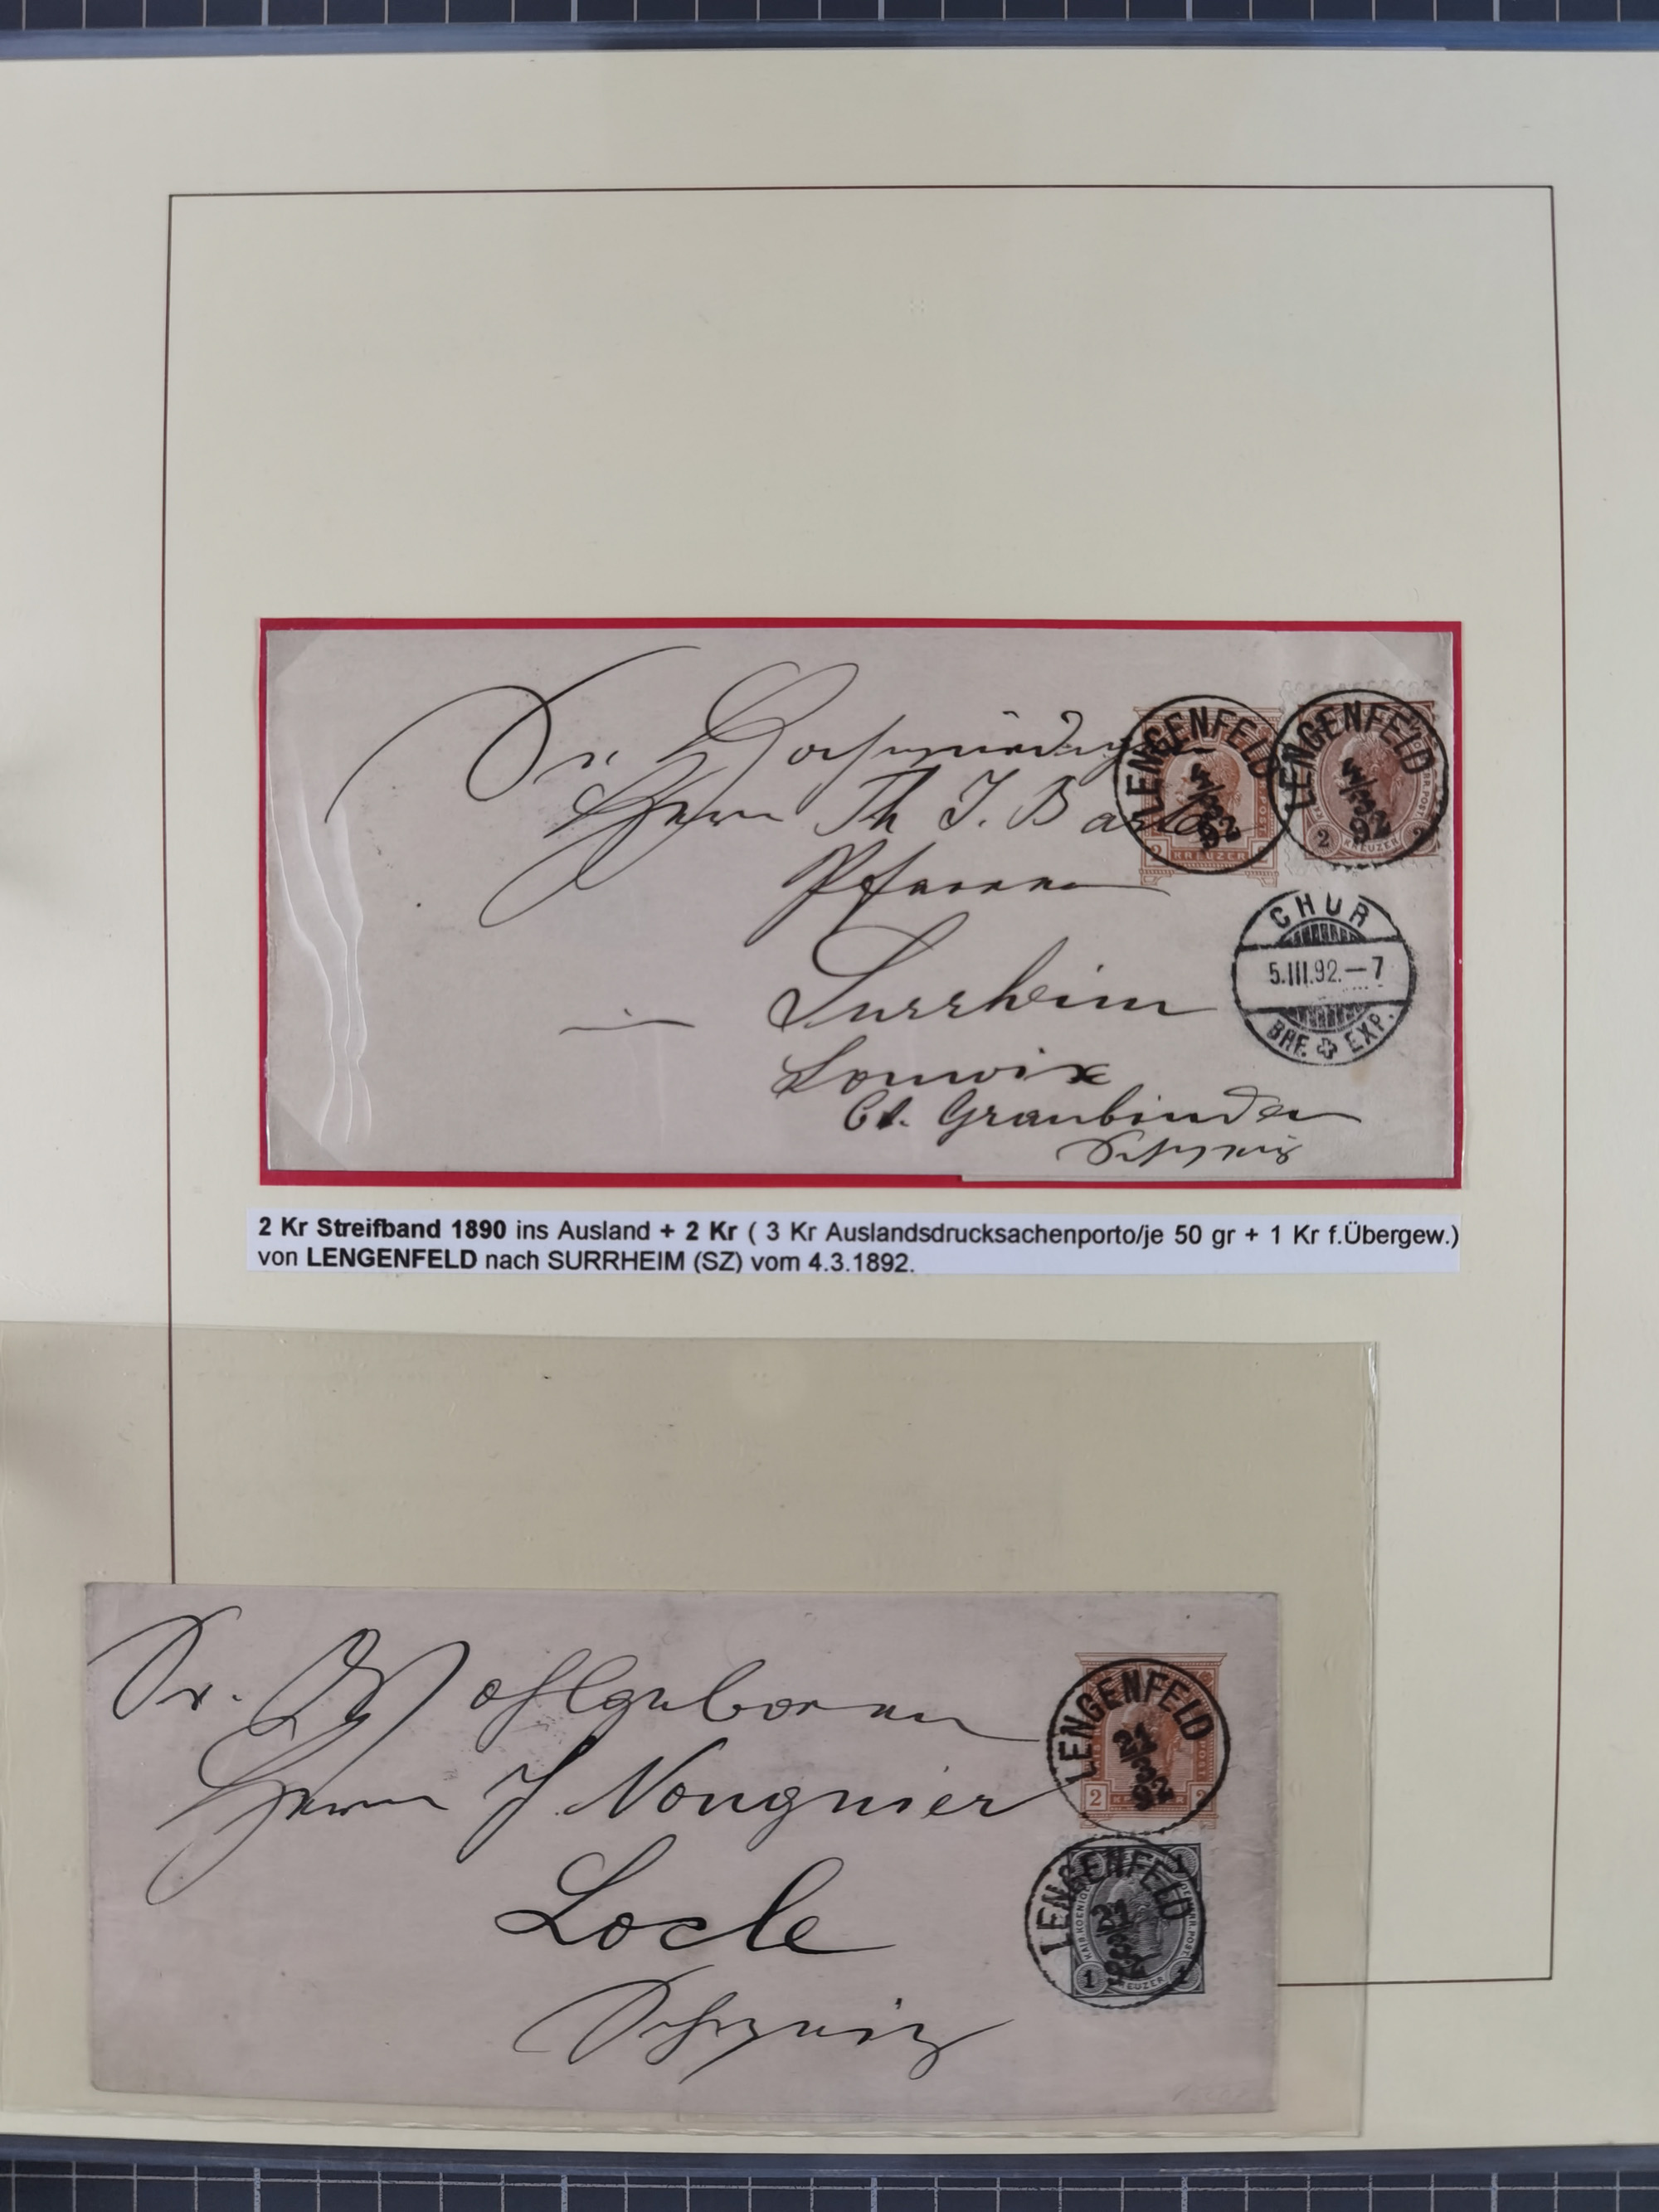 Sr. Hochwürden
Herrn Th J. Barta
Pfarrer
in Surrheim
Somvix
Ct. Graubünden
Schweiz
LENGENFELD
4/3
92
KREUZER
2
LENGENFELD
4/3
92
2 KREUZER 2
CHUR
5.III.92.–7
BRF. EXP.
2 Kr Streifband 1890 ins Ausland + 2 Kr ( 3 Kr Auslandsdrucksachenporto/je 50 gr + 1 Kr f.Übergew.)
von LENGENFELD nach SURRHEIM (SZ) vom 4.3.1892.
Sr. Wohlgeboren
Herrn J. Nougnier
Locle
Schweiz
LENGENFELD
21/3
92
2 KREUZER 2
LENGENFELD
21
92
1 KREUZER 1